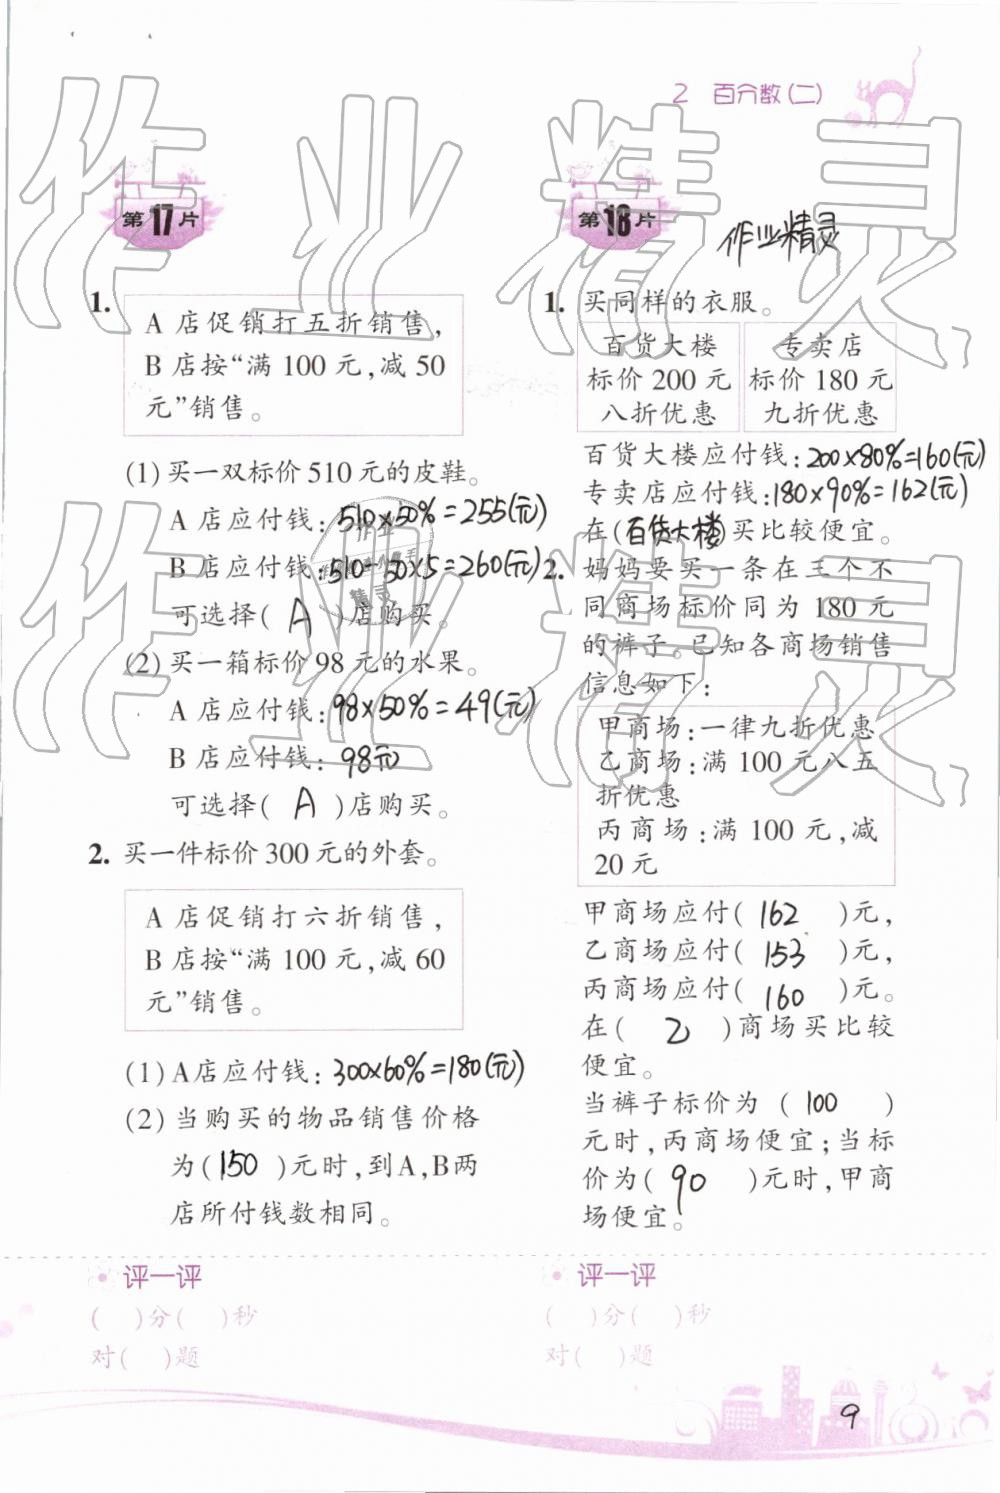 2 百分数(二)
第17片
1.
A 店促销打五折销售,
B 店按“满 100 元,减 50
元”销售。
(1) 买一双标价 510 元的皮鞋。
A 店应付钱: 510×50%=255(元)
B 店应付钱: 510-50×5=260(元)
可选择( A )店购买。
(2) 买一箱标价 98 元的水果。
A 店应付钱: 98×50%=49(元)
B 店应付钱: 98元
可选择( A )店购买。
2. 买一件标价 300 元的外套。
A 店促销打六折销售,
B 店按“满 100 元,减 60
元”销售。
(1) A店应付钱: 300×60%=180(元)
(2) 当购买的物品销售价格
为( 150 )元时,到A,B两
店所付钱数相同。
评一评
( )分( )秒
对( )题
第18片
作业精灵
1. 买同样的衣服。
百货大楼
标价 200 元
八折优惠
专卖店
标价 180 元
九折优惠
百货大楼应付钱: 200×80%=160(元)
专卖店应付钱: 180×90%=162(元)
在(百货大楼)买比较便宜。
2. 妈妈要买一条在三个不
同商场标价同为 180 元
的裤子。已知各商场销售
信息如下:
甲商场:一律九折优惠
乙商场:满 100 元八五
折优惠
丙商场:满 100 元,减
20 元
甲商场应付( 162 )元,
乙商场应付( 153 )元,
丙商场应付( 160 )元。
在( 乙 )商场买比较
便宜。
当裤子标价为 ( 100 )
元时,丙商场便宜;当标
价为( 90 )元时,甲商
场便宜。
评一评
( )分( )秒
对( )题
9
作业精灵
作业精灵